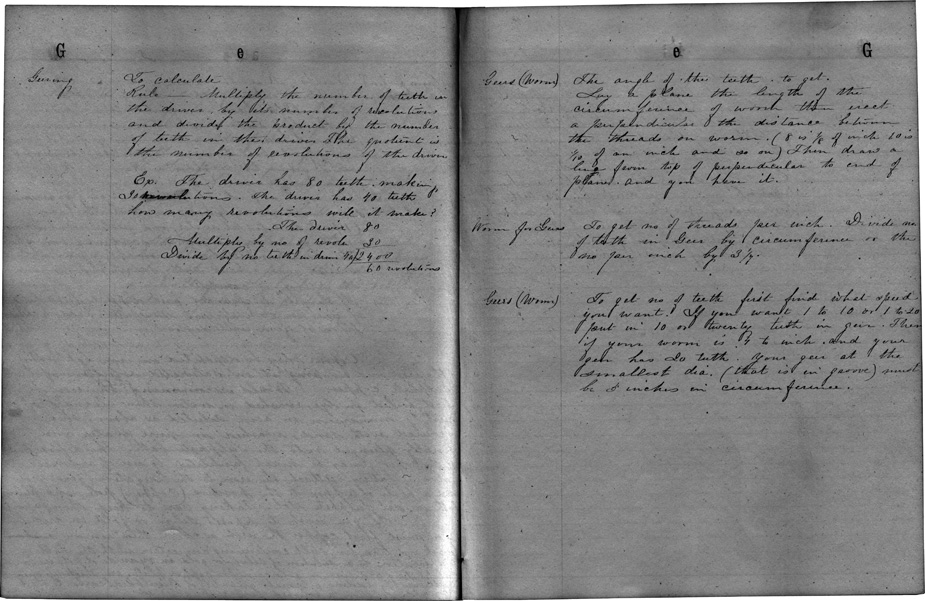 G e
Geering
To calculate
Rule — Multiply the number of teeth in
the driver by its number of revolutions
and divide the product by the number
of teeth in the driven The quotient is
the number of revolutions of the driven
Ex. The driver has 80 teeth making
30 revolutions. The driven has 40 teeth
how many revolutions will it make?
The driver 80
Multiply by no of revols 30
Divide by no teeth in driven 40)2400
60 revolutions
e G
Geers (Worm)
The angle of the teeth to get.
Lay a plane the length of the
circumference of worm then erect
a perpendicular the distance between
the threads on worm. (8 is 1/8 of inch 10 is
1/10 of an inch and so on) Then draw a
line from tip of perpendicular to end of
plane and you have it.
Worm for Geers
To get no of threads per inch. Divide no
of teeth in Geer by circumference or the
no per inch by 3 1/7.
Geers (Worm)
To get no of teeth first find what speed
you want. If you want 1 to 10 or 1 to 20
put in 10 or twenty teeth in geer. Then
if your worm is 4 to inch and your
geer has 20 teeth. Your geer at the
smallest dia. (that is in groove) must
be 5 inches in circumference.